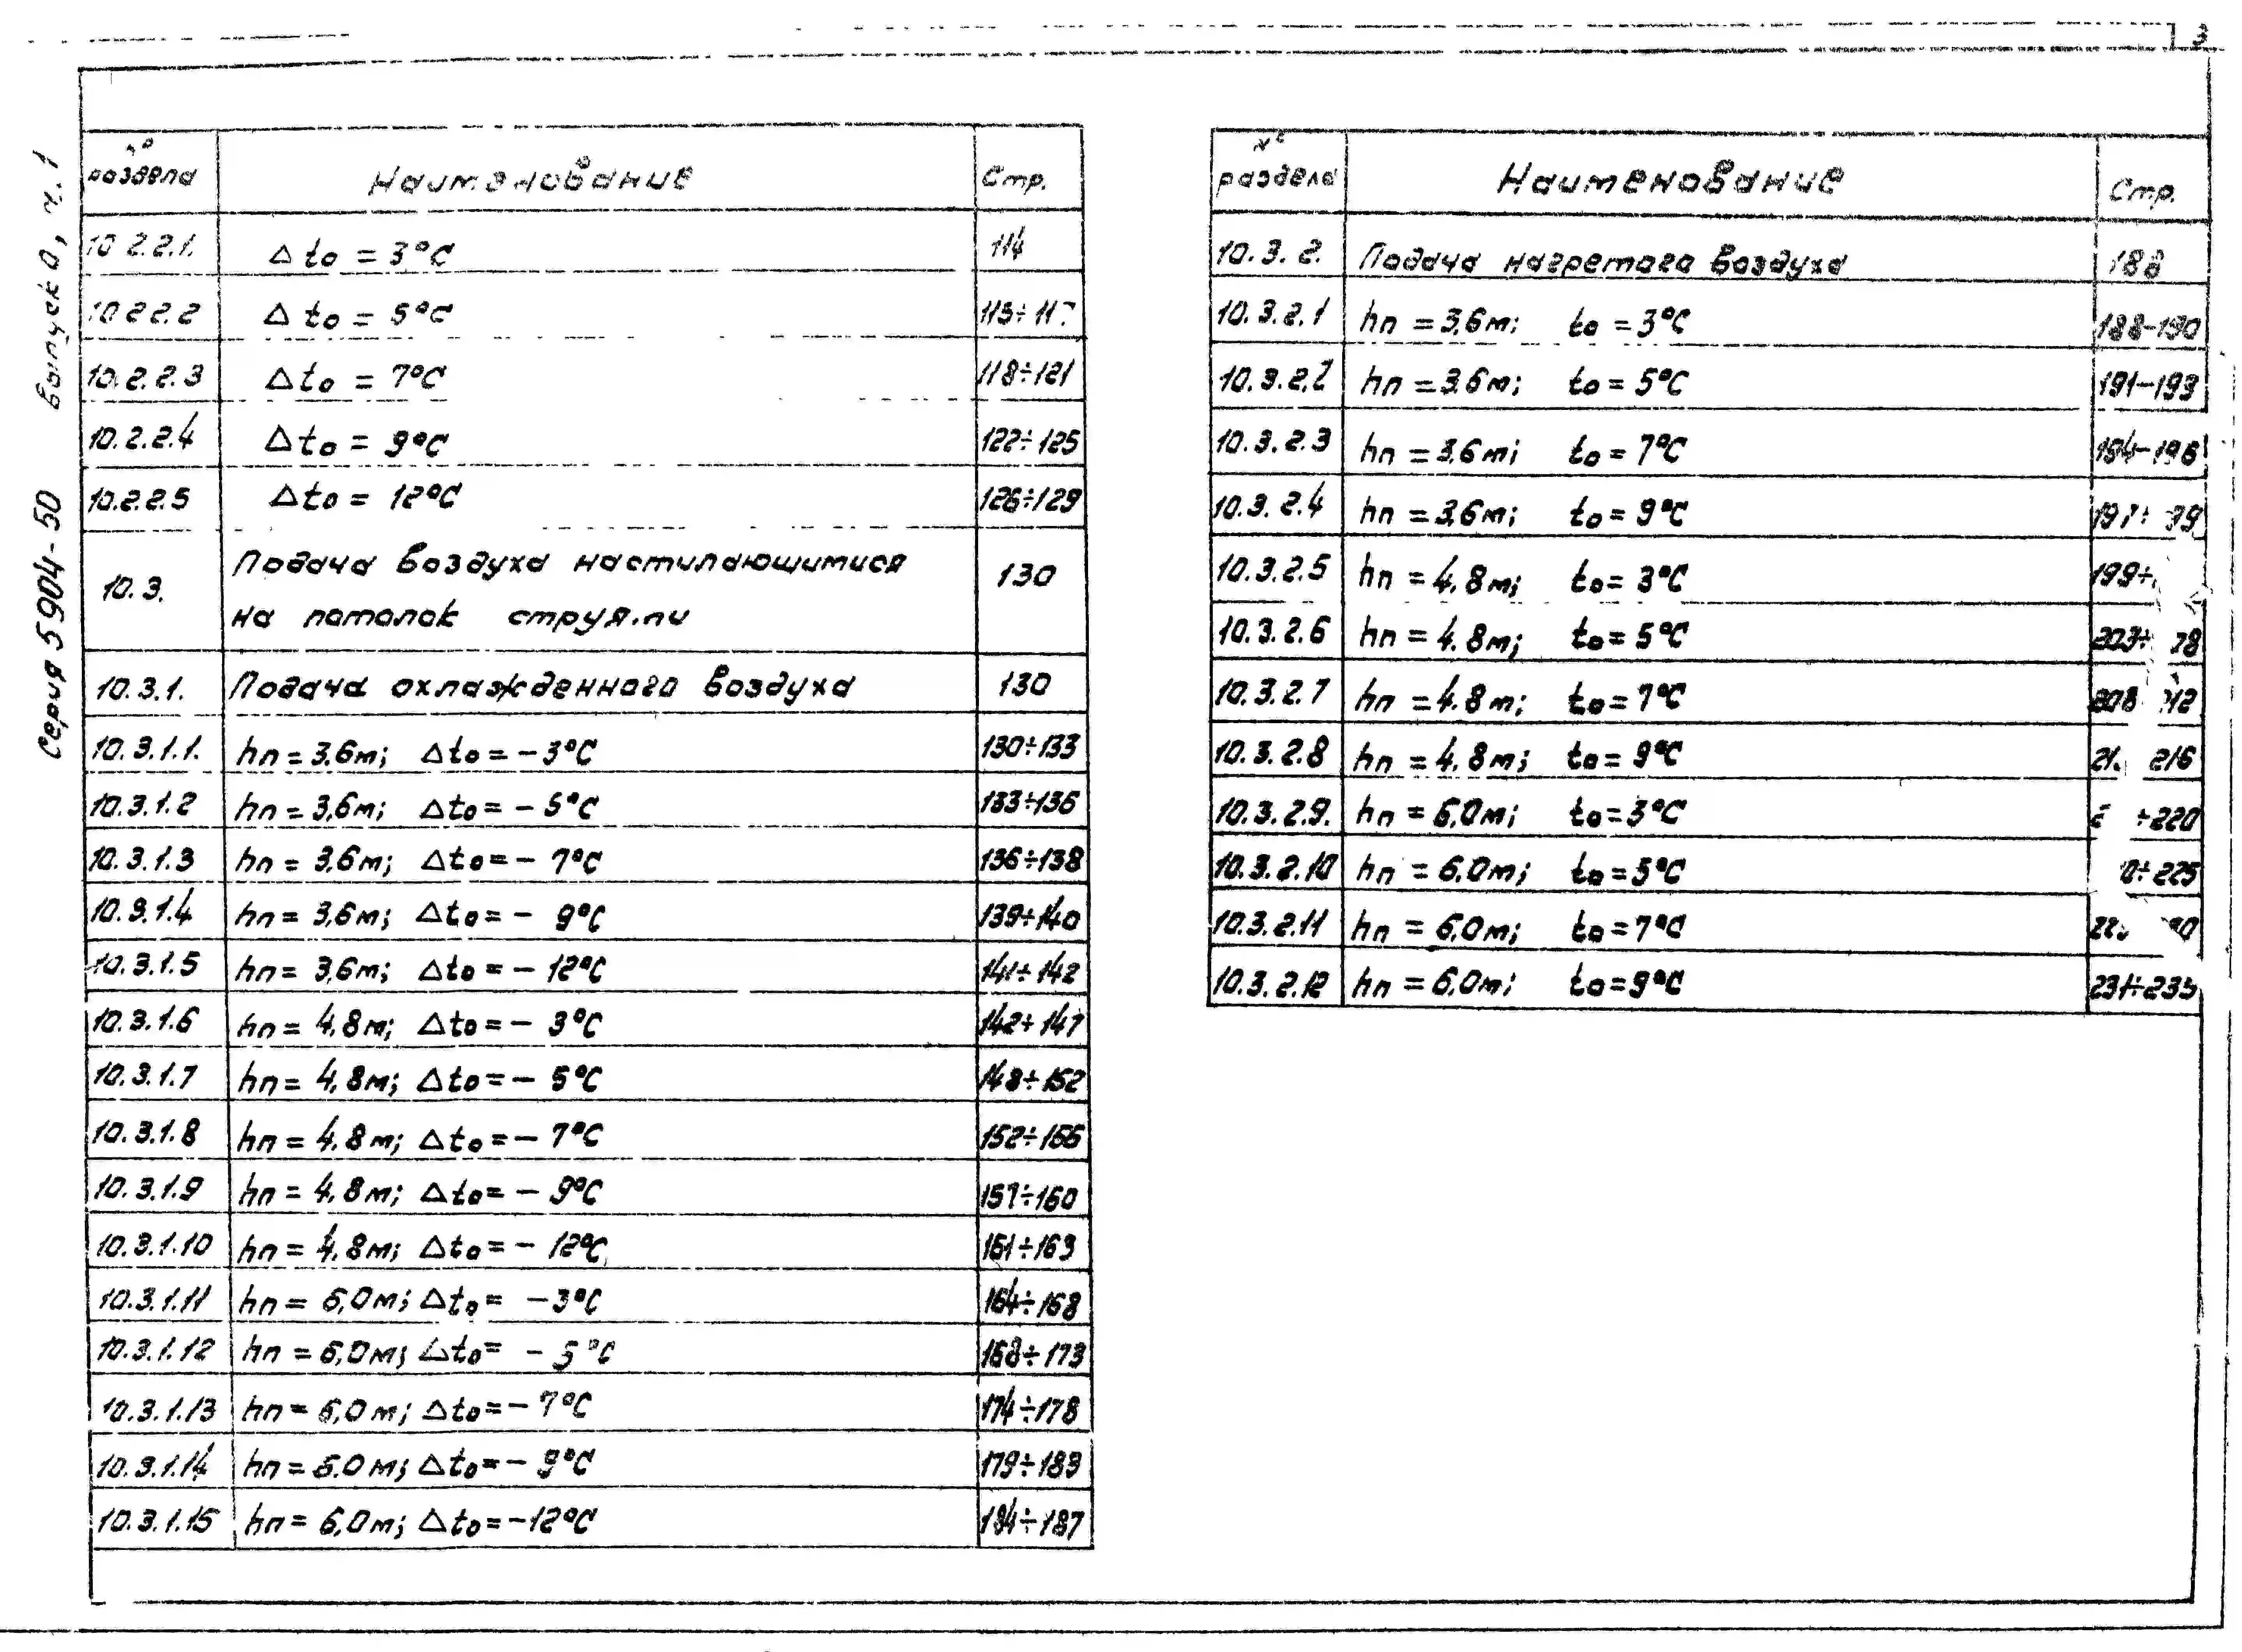 3
Серия 5904-50 Выпуск 0, ч.1
№ раздела Наименование Стр.
10.2.2.1. Δto = 3°C 114
10.2.2.2 Δto = 5°C
10.2.2.3 Δto = 7°C 118÷121
10.2.2.4 Δto = 9°C 122÷125
10.2.2.5 Δto = 12°C 126÷129
10.3. Подача воздуха настилающимися 130
на потолок струями
10.3.1. Подача охлажденного воздуха 130
10.3.1.1. hп = 3,6м; Δto = -3°C 130÷133
10.3.1.2 hп = 3,6м; Δto = -5°C 133÷136
10.3.1.3 hп = 3,6м; Δto = -7°C 136÷138
10.3.1.4 hп = 3,6м; Δto = -9°C 139÷140
10.3.1.5 hп = 3,6м; Δto = -12°C 141÷142
10.3.1.6 hп = 4,8м; Δto = -3°C 142÷147
10.3.1.7 hп = 4,8м; Δto = -5°C 148÷152
10.3.1.8 hп = 4,8м; Δto = -7°C 152÷156
10.3.1.9 hп = 4,8м; Δto = -9°C 157÷160
10.3.1.10 hп = 4,8м; Δto = -12°C 161÷163
10.3.1.11 hп = 6,0м; Δto = -3°C 164÷168
10.3.1.12 hп = 6,0м; Δto = -5°C 168÷173
10.3.1.13 hп = 6,0м; Δto = -7°C 174÷178
10.3.1.14 hп = 6.0м; Δto = -9°C 179÷183
10.3.1.15 hп = 6,0м; Δto = -12°C 184÷187
№ раздела Наименование Стр.
10.3.2. Подача нагретого воздуха 188
10.3.2.1 hп = 3,6м; to = 3°C 188-190
10.3.2.2 hп = 3,6м; to = 5°C 191-193
10.3.2.3 hп = 3,6м; to = 7°C 194-196
10.3.2.4 hп = 3,6м; to = 9°C
10.3.2.5 hп = 4,8м; to = 3°C
10.3.2.6 hп = 4,8м; to = 5°C
10.3.2.7 hп = 4,8м; to = 7°C
10.3.2.8 hп = 4,8м; to = 9°C
10.3.2.9. hп = 6,0м; to = 3°C
10.3.2.10 hп = 6,0м; to = 5°C
10.3.2.11 hп = 6,0м; to = 7°C
10.3.2.12 hп = 6,0м; to = 9°C 231÷235